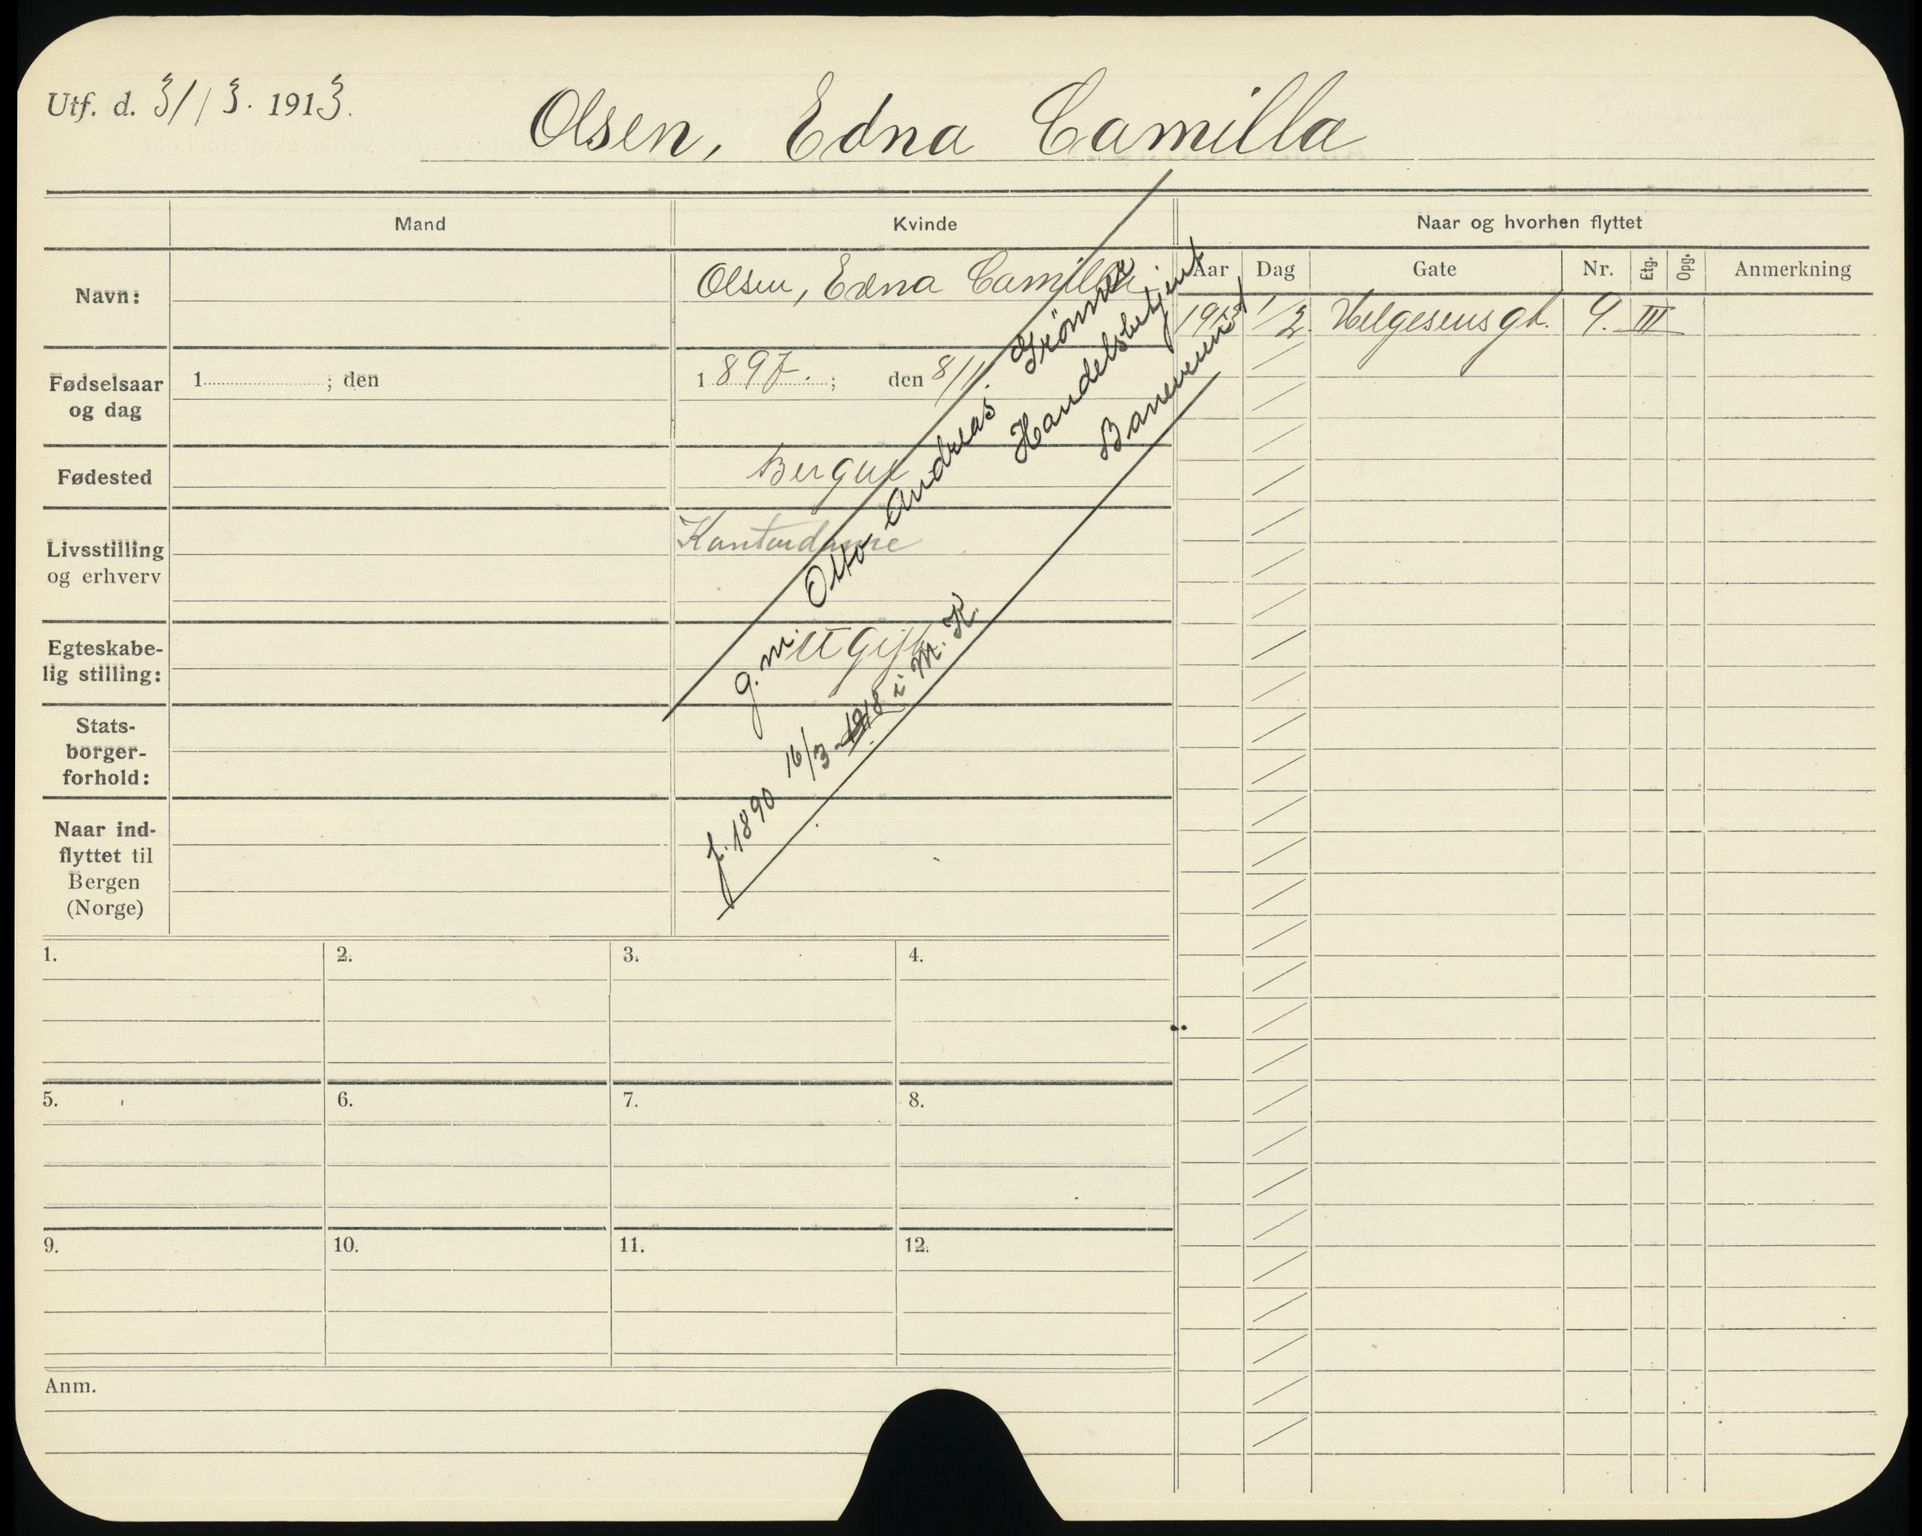 Utf. d. 31/3. 1913.
Olsen, Edna Camilla
Mand
Kvinde
Naar og hvorhen flyttet
Navn:
Olsen, Edna Camilla
Aar Dag Gate Nr. Etg. Opg. Anmerkning
1913 1/2. Helgesens gt. 9. III
Fødselsaar
og dag
1 ; den
1897. ; den 8/1
Fødested
Bergen
Livsstilling
og erhverv
Kontordame
Egteskabe-
lig stilling:
Ugift
g. m. Otto Andreas Grönner
Handelsbetjent
f. 1890 16/3 1918 i M. K.
Stats-
borger-
forhold:
Naar ind-
flyttet til
Bergen
(Norge)
1. 2. 3. 4.
5. 6. 7. 8.
9. 10. 11. 12.
Anm.